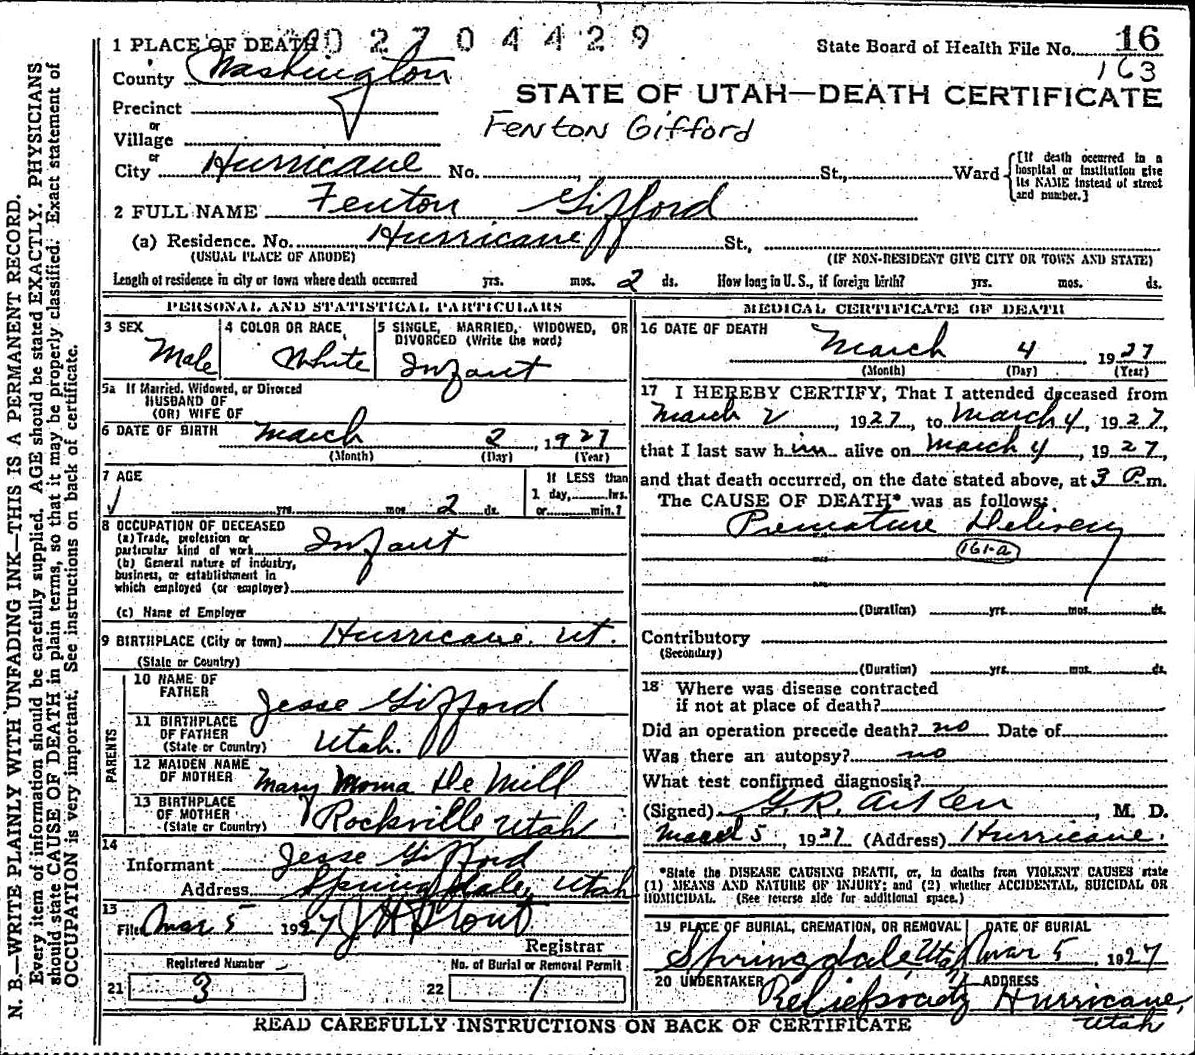 1 PLACE OF DEATH 0 2 7 0 4 4 2 9 State Board of Health File No. 16
163
County Washington
STATE OF UTAH—DEATH CERTIFICATE
Precinct
or
Fenton Gifford
Village
or
City Hurricane No. , St., Ward {[If death occurred in a hospital or institution give its NAME instead of street and number.]
2 FULL NAME Fenton Gifford
(a) Residence. No. Hurricane St.,
(USUAL PLACE OF ABODE) (IF NON-RESIDENT GIVE CITY OR TOWN AND STATE)
Length of residence in city or town where death occurred yrs. mos. 2 ds. How long in U. S., if foreign birth? yrs. mos. ds.
PERSONAL AND STATISTICAL PARTICULARS
3 SEX
Male
4 COLOR OR RACE
White
5 SINGLE, MARRIED, WIDOWED, OR
DIVORCED (Write the word)
Infant
5a If Married, Widowed, or Divorced
HUSBAND OF
(OR) WIFE OF
6 DATE OF BIRTH March 2, 1927
(Month) (Day) (Year)
7 AGE
yrs. mos. 2 ds.
If LESS than
1 day, hrs.
or min.?
8 OCCUPATION OF DECEASED
(a) Trade, profession or
particular kind of work Infant
(b) General nature of industry,
business, or establishment in
which employed (or employer)
(c) Name of Employer
9 BIRTHPLACE (City or town) Hurricane. Ut.
(State or Country)
PARENTS
10 NAME OF
FATHER Jesse Gifford
11 BIRTHPLACE
OF FATHER
(State or Country) Utah.
12 MAIDEN NAME
OF MOTHER Mary Moma De Mill
13 BIRTHPLACE
OF MOTHER
(State or Country) Rockville Utah
14
Informant Jesse Gifford
Address Springdale, Utah
15
Filed Mar 5 1927 J H Prout
Registrar
Registered Number
21 3
No. of Burial or Removal Permit
22 1
MEDICAL CERTIFICATE OF DEATH
16 DATE OF DEATH
March 4 1927
(Month) (Day) (Year)
17 I HEREBY CERTIFY, That I attended deceased from
March 2, 1927, to March 4, 1927,
that I last saw him alive on March 4, 1927,
and that death occurred, on the date stated above, at 3 P.m.
The CAUSE OF DEATH* was as follows:
Premature Delivery
161-a
(Duration) yrs. mos. ds.
Contributory
(Secondary)
(Duration) yrs. mos. ds.
18 Where was disease contracted
if not at place of death?
Did an operation precede death? no Date of
Was there an autopsy? no
What test confirmed diagnosis?
(Signed) G. R. Aiken, M. D.
March 5, 1927 (Address) Hurricane.
*State the DISEASE CAUSING DEATH, or, in deaths from VIOLENT CAUSES state
(1) MEANS AND NATURE OF INJURY; and (2) whether ACCIDENTAL, SUICIDAL OR
HOMICIDAL. (See reverse side for additional space.)
19 PLACE OF BURIAL, CREMATION, OR REMOVAL
Springdale, Utah
DATE OF BURIAL
Mar 5, 1927
20 UNDERTAKER
Relief society
ADDRESS
Hurricane,
Utah
READ CAREFULLY INSTRUCTIONS ON BACK OF CERTIFICATE
N. B.—WRITE PLAINLY WITH UNFADING INK—THIS IS A PERMANENT RECORD.
Every item of information should be carefully supplied. AGE should be stated EXACTLY. PHYSICIANS
should state CAUSE OF DEATH in plain terms, so that it may be properly classified. Exact statement of
OCCUPATION is very important. See instructions on back of certificate.